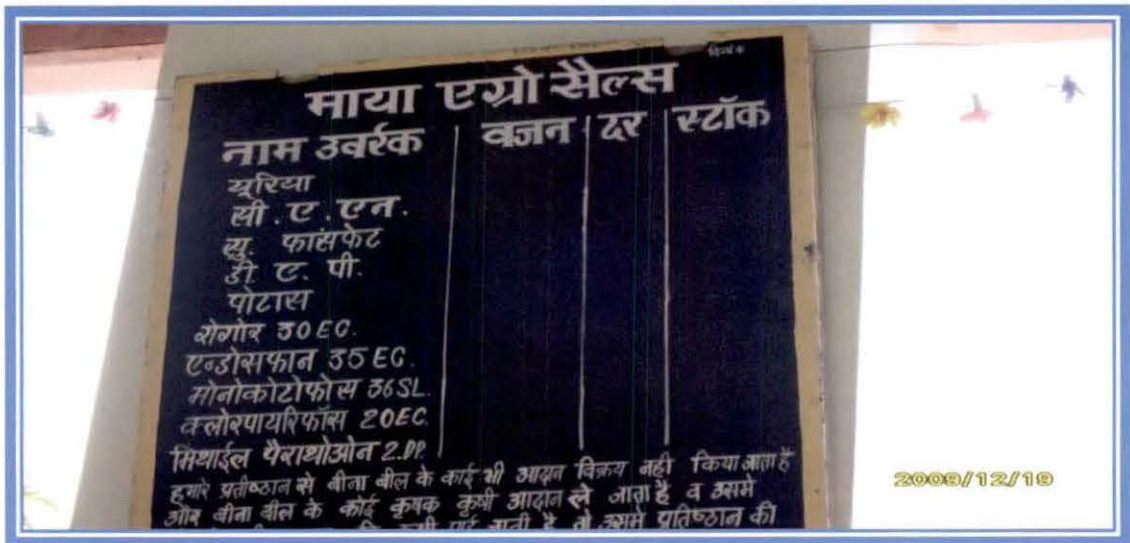 दिनांक
माया एग्रो सैल्स
नाम उवर्रक वजन दर स्टॉक
यूरिया
सी. ए. एन.
सु. फास्फेट
डी. ए. पी.
पोटास
रोगोर 30 EC.
एन्डोसफान 35 EC.
मोनोकोटोफोस 36 SL.
क्लोरपायरिफॉस 20 EC.
मिथाईल पैराथोओन 2. DP.
हमारे प्रतीष्ठान से बीना बील के काई भी आदान विक्रय नही किया जाता है
और बीना बील के कोई कृषक कृषी आदान ले जाता है व उसमे
पाई जाती है तो उसमे प्रतिष्ठान की
2009/12/19